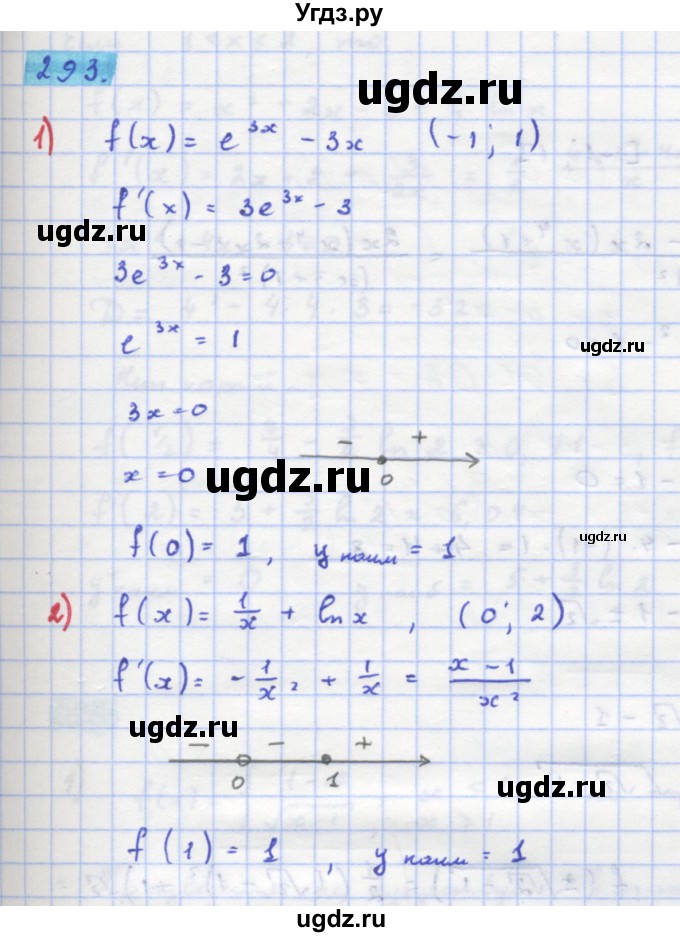 Угдз.ру
293.
ugdz.ru
1) f(x) = e^{3x} - 3x (-1; 1)
f'(x) = 3e^{3x} - 3
ugdz.ru
3e^{3x} - 3 = 0
e^{3x} = 1
ugdz.ru
3x = 0
- +
x = 0
0
ugdz.ru
f(0) = 1, y наим = 1
2) f(x) = 1/x + ln x, (0; 2)
f'(x) = - 1/x² + 1/x = (x - 1)/x²
- - +
0 1
ugdz.ru
f(1) = 1, y наим = 1
ugdz.ru